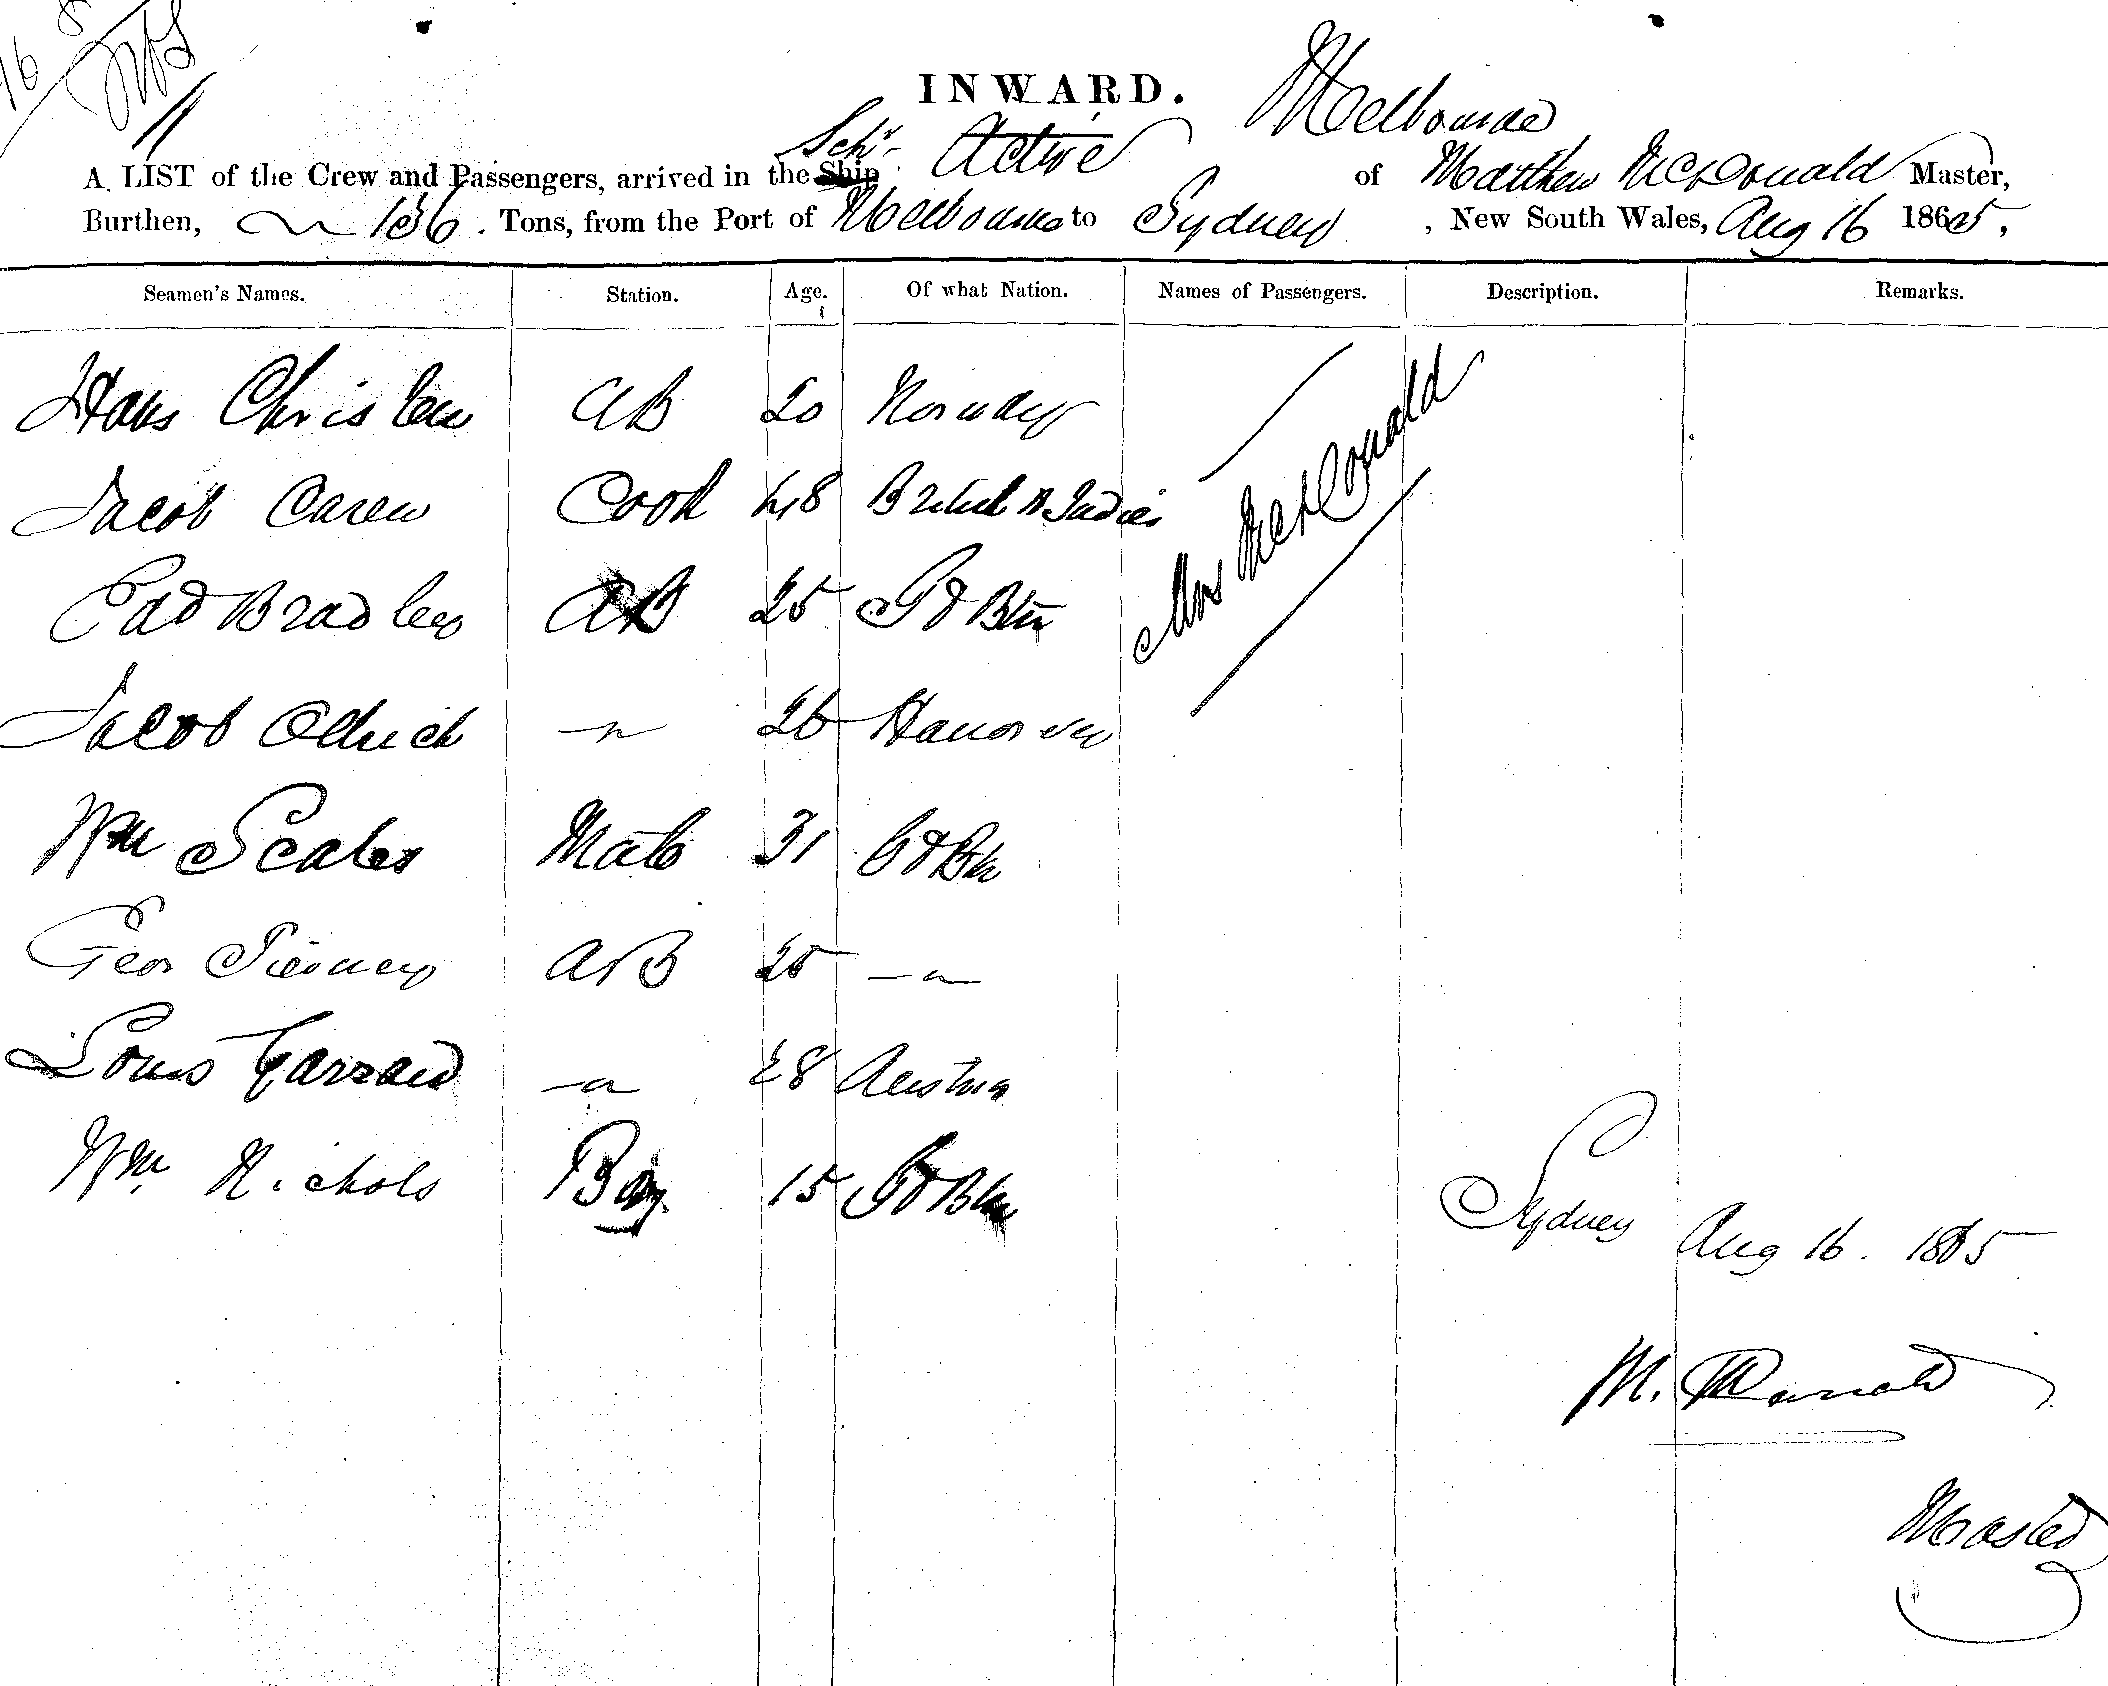 16
INWARD.
Melbourne
A LIST of the Crew and Passengers, arrived in the Ship Schr Active of Matthew McDonald Master,
Burthen, 136 Tons, from the Port of Melbourne to Sydney, New South Wales, Aug 16 1865,
Seamen's Names. Station. Age. Of what Nation. Names of Passengers. Description. Remarks.
Hans Christen AB 20 Norway
Jacob Carew Cook 48 British W Indies
Ed Bradley AB 25 Gt Btn
Jacob Ollrich " 26 Hanover
Mrs McDonald
Wm Scales Mate 31 Gt Btn
Geo Tierney AB 25 "
Louis Garrard " 28 Austria
Wm Nichols Boy 15 Gt Btn
Sydney Aug 16. 1865
M. McDonald
Master